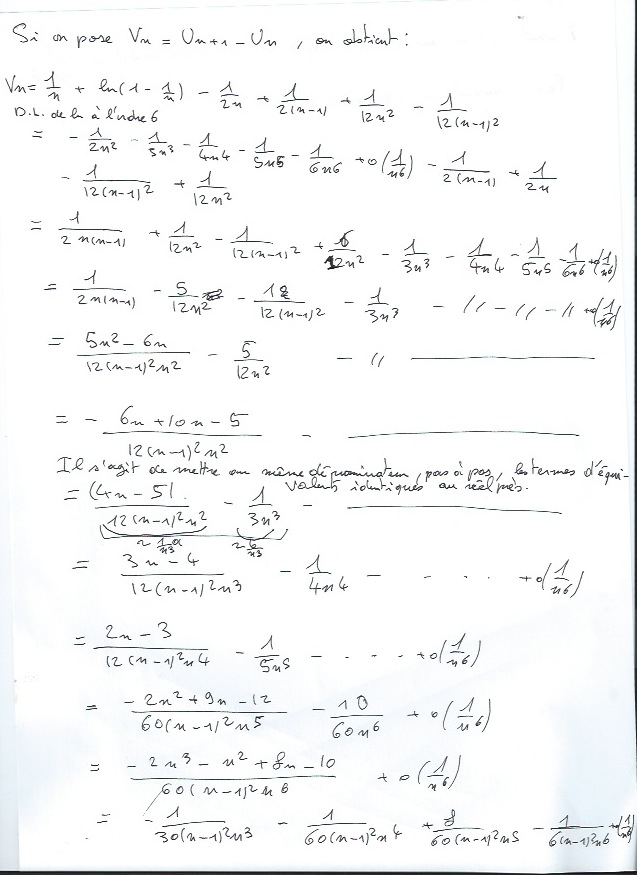 Si on pose Vn = Un+1 - Un , on obtient :
Vn = 1/n + ln(1 - 1/n) - 1/2n + 1/2(n-1) + 1/12n² - 1/12(n-1)²
D.L. de ln à l'ordre 6
= - 1/2n² - 1/3n³ - 1/4n4 - 1/5n5 - 1/6n6 + o(1/n6) - 1/2(n-1) + 1/2n
- 1/12(n-1)² + 1/12n²
= 1/2n(n-1) + 1/12n² - 1/12(n-1)² + 6/12n² - 1/3n³ - 1/4n4 - 1/5n5 - 1/6n6 + o(1/n6)
= 1/2n(n-1) - 5/12n² - 1/12(n-1)² - 1/3n³ - // - // - // + o(1/n6)
= 5n² - 6n/12(n-1)²n² - 5/12n² - //
= - 6n + 10n - 5/12(n-1)²n² -
Il s'agit de mettre au même dénominateur, pas à pas, les termes d'équi-
valents identiques au réel près.
= (4n - 5)/12(n-1)²n² - 1/3n³ -
= 3n - 4/12(n-1)²n³ - 1/4n4 - - . . . + o(1/n6)
= 2n - 3/12(n-1)²n4 - 1/5n5 - . . . . + o(1/n6)
= - 2n² + 9n - 12/60(n-1)²n5 - 10/60n6 + o(1/n6)
= - 2n³ - n² + 8n - 10/60(n-1)²n6 + o(1/n6)
= - 1/30(n-1)²n3 - 1/60(n-1)²n4 + 8/60(n-1)²n5 - 1/6(n-1)²n6 + o(1/n6)